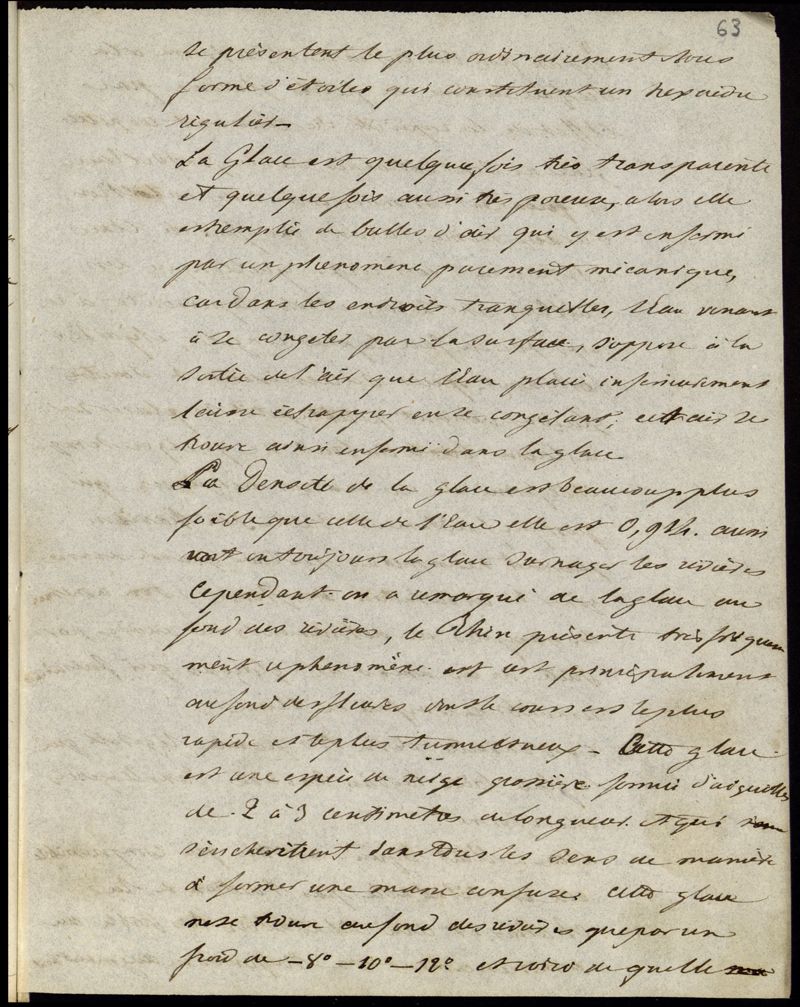 63
se présentent le plus ordinairement sous
forme d'étoiles qui constituent un hexaèdre
régulier—
La Glace est quelquefois très transparente
et quelquefois aussi très poreuse, alors elle
est remplie de bulles d'air qui y est enfermé
par un phenomene purement mécanique,
car dans les endroits tranquilles, l'Eau venant
à se congeler par la surface, s'oppose à la
sortie de l'air que l'Eau placé inferieurement
laisse échapper en se congelant; cet air se
trouve ainsi enfermé dans la glace
La Densité de la glace est beaucoup plus
faible que celle de l'Eau elle est 0,914. aussi
voit on toujours la glace surnager les rivières
Cependant on a remarqué de la glace au
fond des rivières, le Rhin présente très fréquem
ment ce phenomène. est c'est principalement
au fond des fleuves dont le cours est le plus
rapide et le plus tumultueux — Cette glace
est une espèce de neige grossière formée d'aiguilles
de 2 à 3 centimetres de longueur. et qui
s'enchevêtrent dans tous les sens de manière
à former une masse confuse. Cette glace
ne se trouve au fond des rivières que par un
froid de —8° —10° —12° et voici de quelle